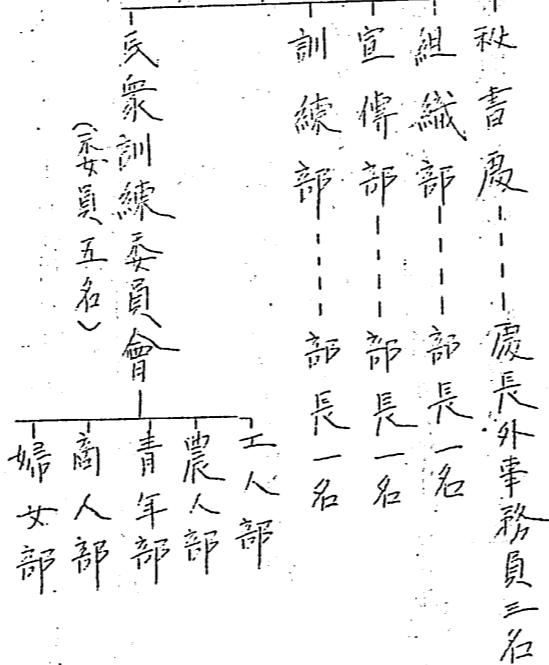 秘書處----處長外事務員三名
組織部----部長一名
宣傳部----部長一名
訓練部----部長一名
民衆訓練委員會
(委員五名)
工人部
農人部
青年部
商人部
婦女部